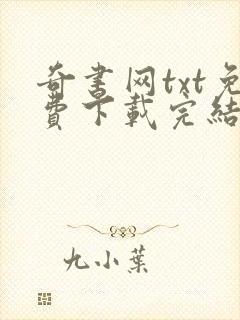 奇書网txt免
費下載完結
九小葉